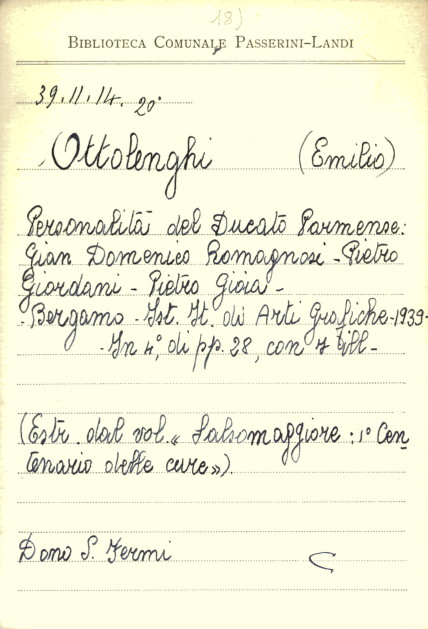 18)
BIBLIOTECA COMUNALE PASSERINI-LANDI
39.11.14. 20°
Ottolenghi (Emilio)
Personalità del Ducato Parmense:
Gian Domenico Romagnosi - Pietro
Giordani - Pietro Gioia -
- Bergamo - Ist. It. di Arti Grafiche - 1939 -
- In 4°, di pp. 28, con 7 ill -
(Estr. dal vol. « Salsomaggiore : 1° Cen-
tenario delle cure »).
Dono S. Fermi
C